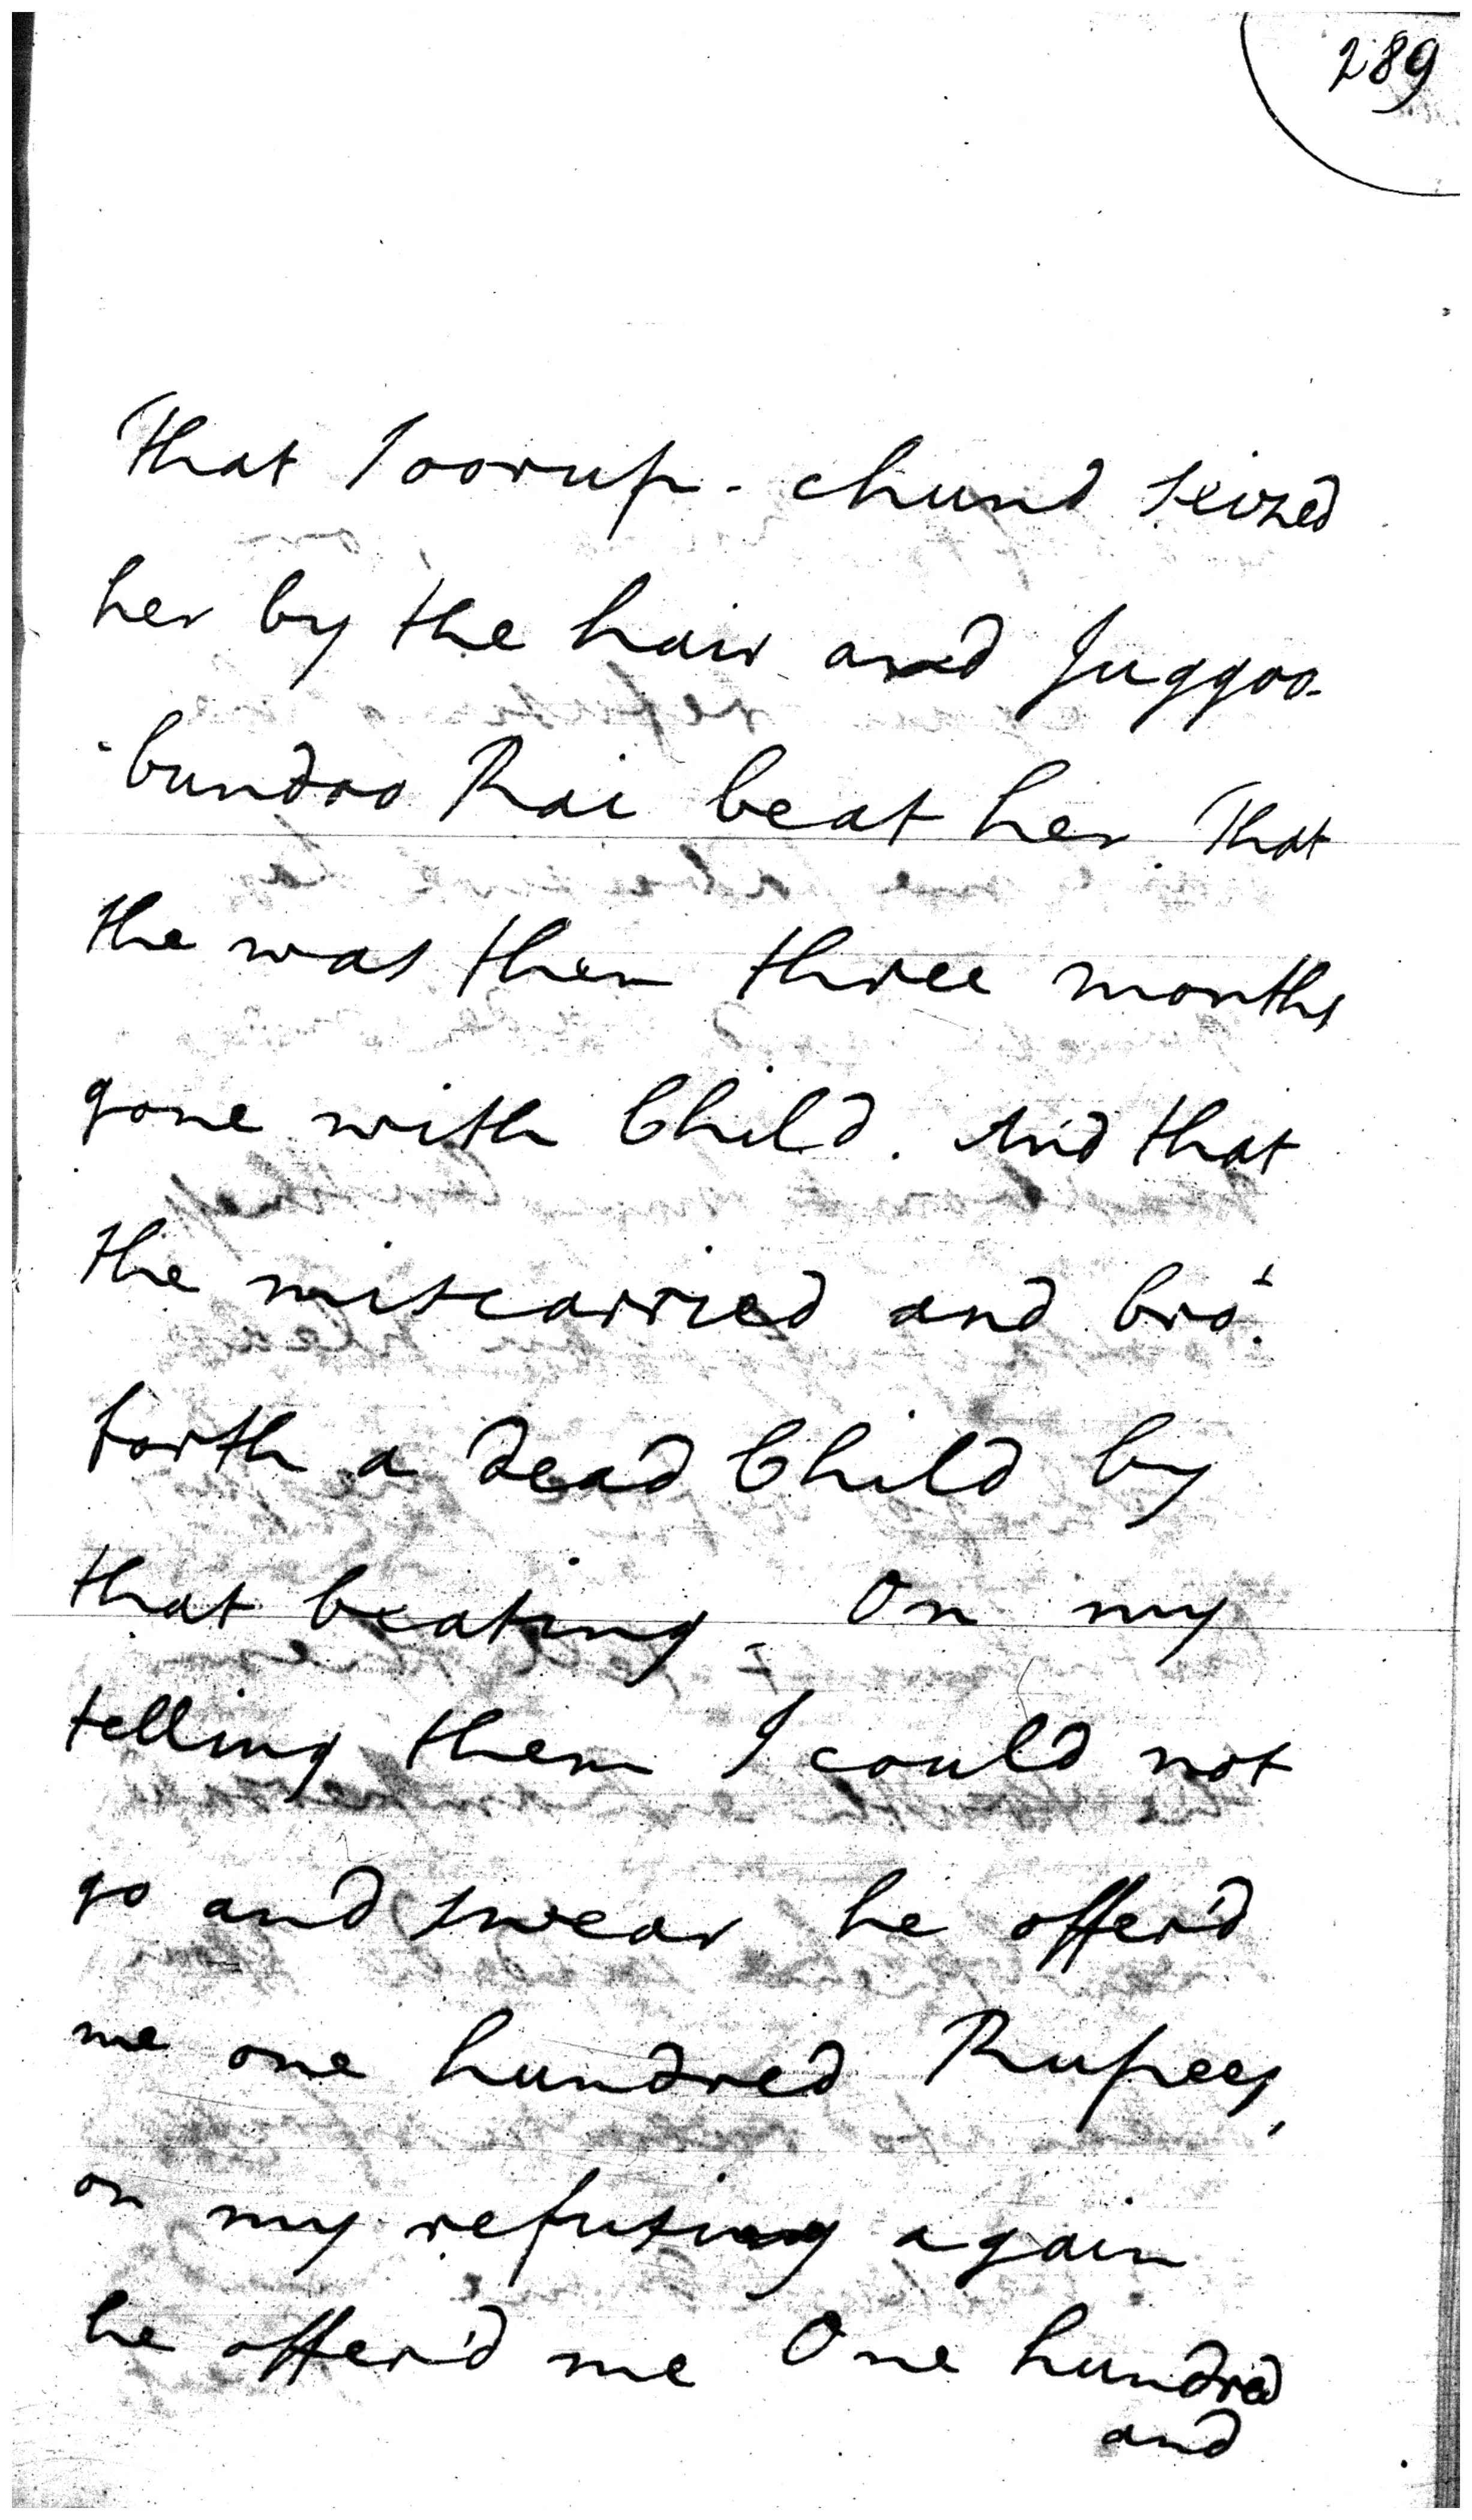 289
That Soorup-chund seized
her by the hair and Juggoo-
-bundoo Rai beat her. That
she was then three months
gone with Child. And that
she miscarried and bro.t
forth a dead Child by
that beating. On my
telling them I could not
go and swear he offer'd
me one hundred Rupees,
on my refusing again
he offer'd me One hundred
and